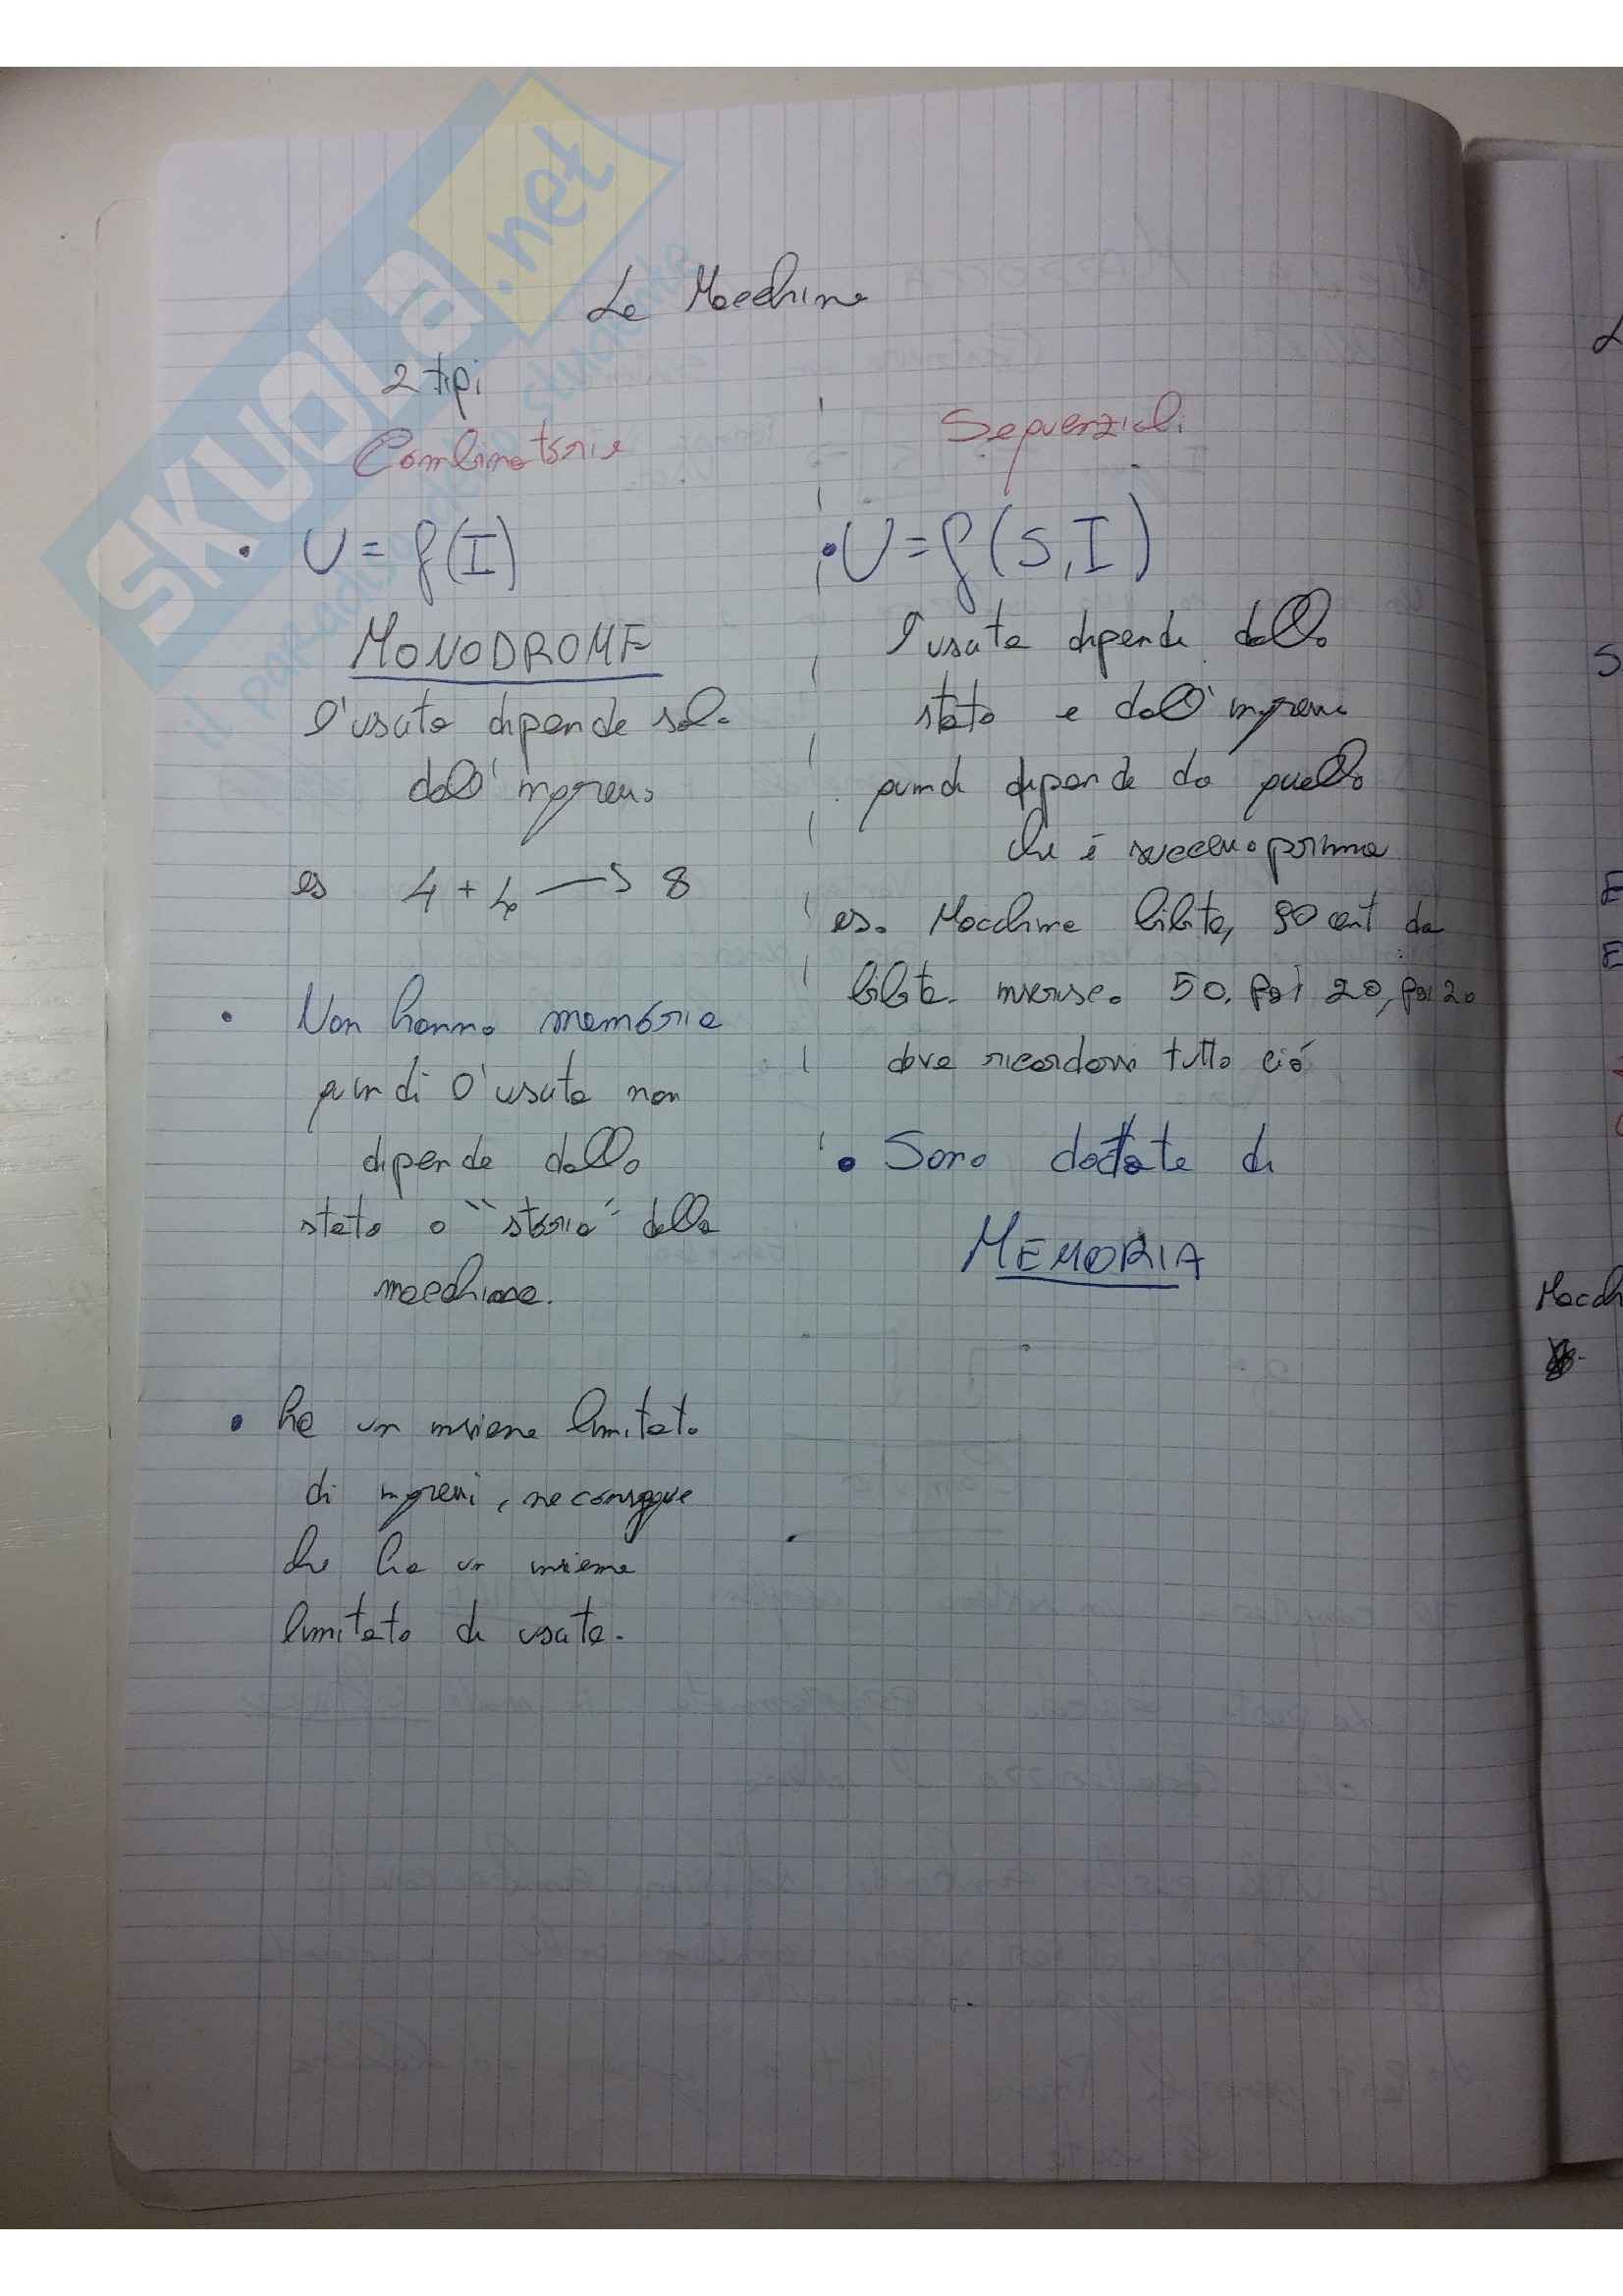 Le Macchine
2 tipi
Combinatorie
• U = f(I)
MONODROME
l'uscita dipende solo
dall'ingresso
es 4 + 4 → 8
• Non hanno memoria
quindi l'uscita non
dipende dallo
stato o "storia" della
macchina.
• ha un insieme limitato
di ingressi, ne consegue
che ha un insieme
limitato di uscite.
Sequenziali
• U = f(S, I)
l'uscita dipende dallo
stato e dall'ingressi
quindi dipende da quello
che è successo prima
es. Macchine bibite, 90 cent da
bibita. inserisco 50, poi 20, poi 20
deve ricordarsi tutto ciò
• Sono dotate di
MEMORIA
Macch
SKUOLA.net
il paradiso dello studente